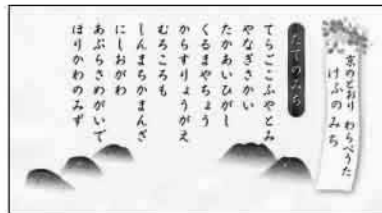 京のとおり わらべうた
けふのみち
たてのみち
てらごこふやとみ
やなぎさかい
たかあいひがし
くるまやちょう
からすりょうがえ
むろころも
しんまちかまんざ
にしおがわ
あぶらさめがいで
ほりかわのみず